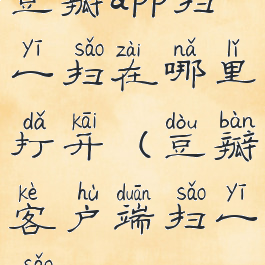 豆瓣app扫
yī sǎo zài nǎ lǐ
一扫在哪里
dǎ kāi dòu bàn
打开（豆瓣
kè hù duān sǎo yī
客户端扫一
sǎo